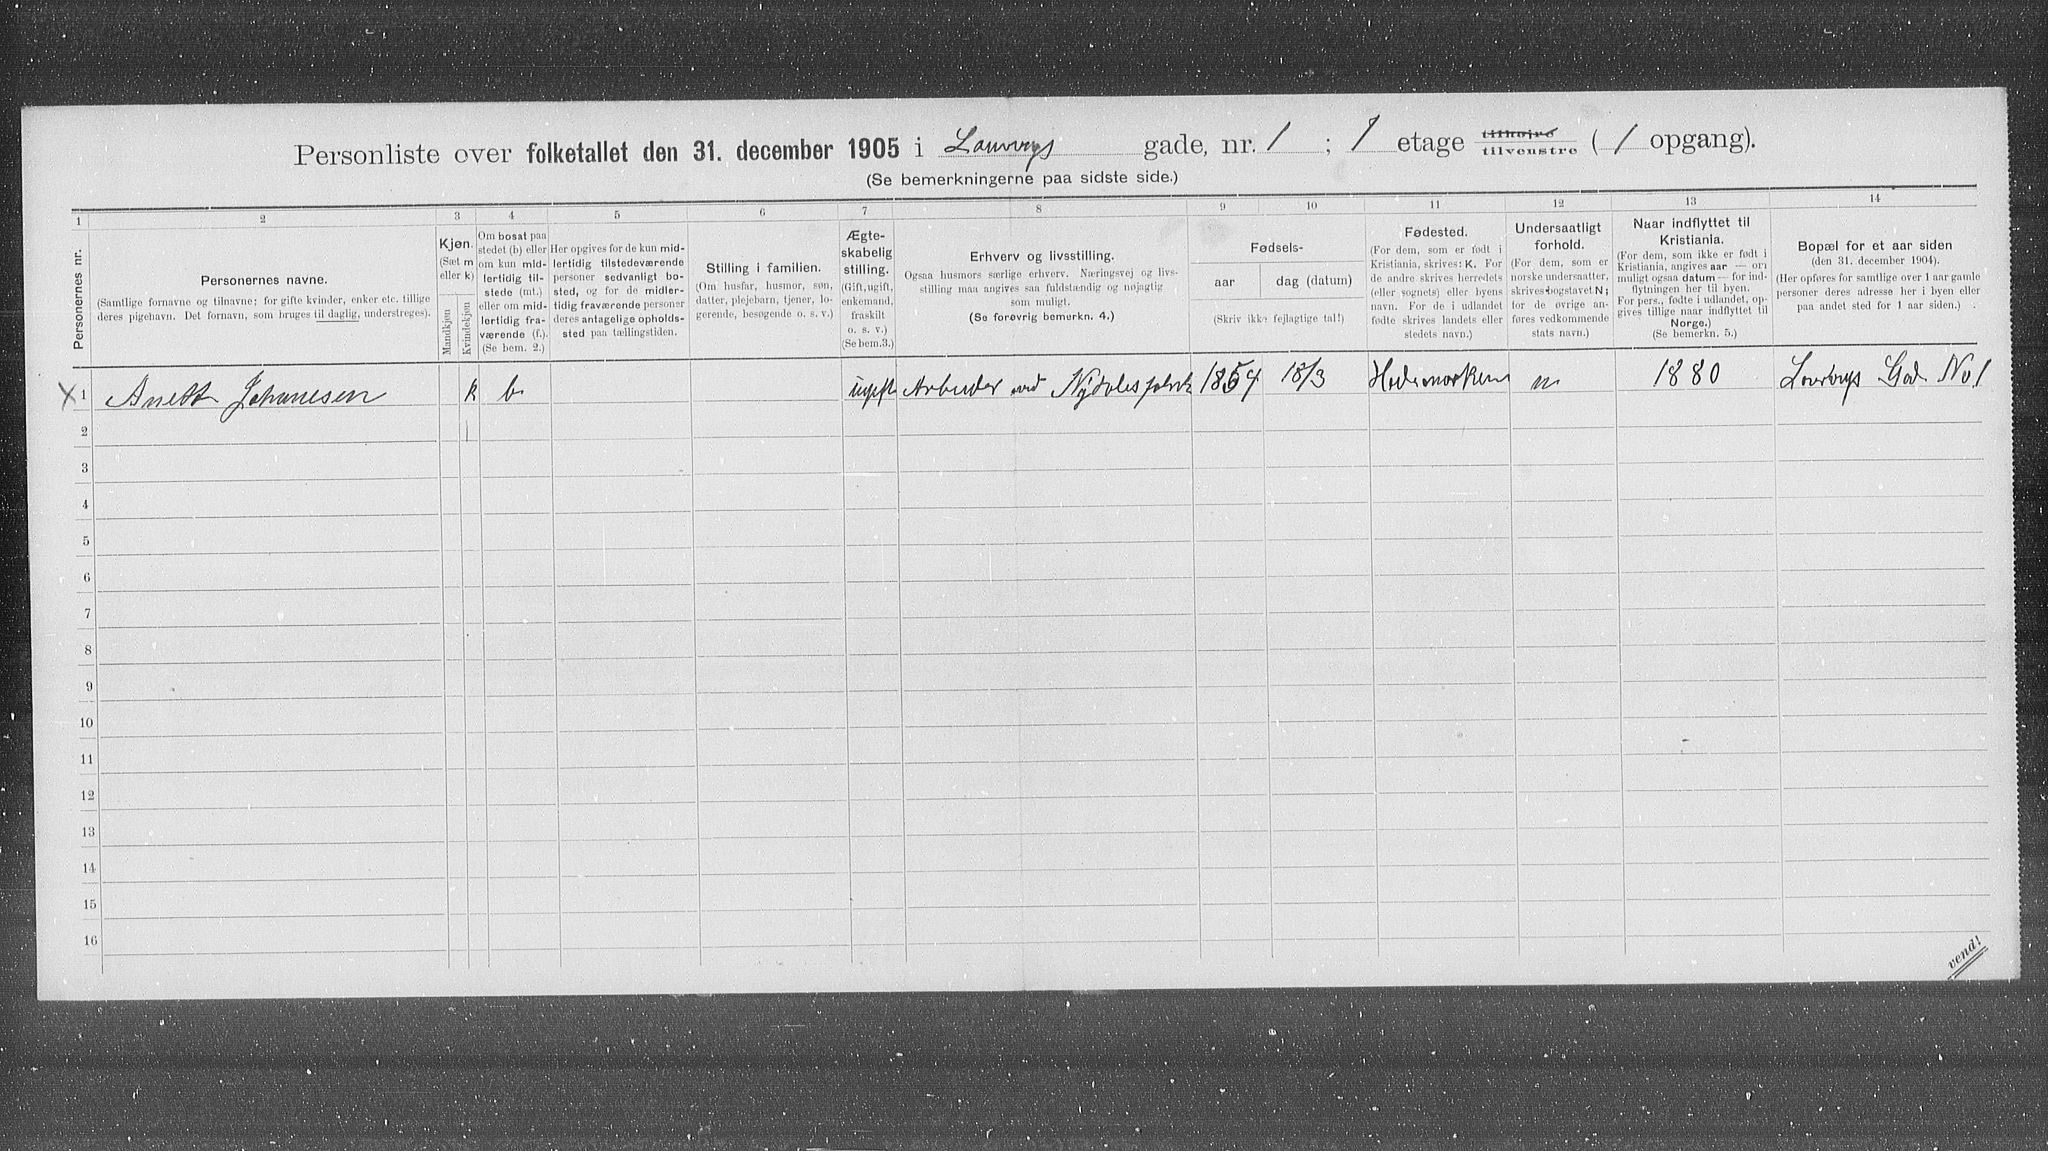 Personliste over folketallet den 31. december 1905 i Laurvigs gade, nr. 1 ; 1 etage tilhøire tilvenstre ( 1 opgang).
(Se bemerkningerne paa sidste side.)
1 2 3 4 5 6 7 8 9 10 11 12 13 14
Personernes nr.
Personernes navne.
(Samtlige fornavne og tilnavne; for gifte kvinder, enker etc. tillige
deres pigehavn. Det fornavn, som bruges til daglig, understreges).
Kjøn.
(Sæt m
eller k)
Mandkjøn
Kvindekjøn
Om bosat paa
stedet (b) eller
om kun mid-
lertidig til-
stede (mt.)
eller om mid-
lertidig fra-
værende (f.).
(Se bem. 2.)
Her opgives for de kun mid-
lertidig tilstedeværende
personer sedvanligt bo-
sted, og for de midler-
tidig fraværende personer
deres antagelige opholds-
sted paa tællingstiden.
Stilling i familien.
(Om husfar, husmor, søn,
datter, plejebarn, tjener, lo-
gerende, besøgende o. s. v.)
Ægte-
skabelig
stilling.
(Gift, ugift,
enkemand,
fraskilt
o. s. v.)
(Se bem. 3.)
Erhverv og livsstilling.
Ogsaa husmors særlige erhverv. Næringsvej og livs-
stilling maa angives saa fuldstændig og nøjagtig
som muligt.
(Se forøvrig bemerkn. 4.)
Fødsels-
aar dag (datum)
(Skriv ikke fejlagtige tal!)
Fødested.
(For dem, som er født i
Kristiania, skrives: K. For
de andre skrives herredets
(eller sognets) eller byens
navn. For de i udlandet
fødte skrives landets eller
stedets navn.)
Undersaatligt
forhold.
(For dem, som er
norske undersaatter,
skrives bogstavet N;
for de øvrige an-
føres vedkommende
stats navn.)
Naar indflyttet til
Kristiania.
(For dem, som ikke er født i
Kristiania, angives aar — om
muligt ogsaa datum — for ind-
flytningen her til byen.
For pers., fødte i udlandet, op-
gives tillige naar indflyttet til
Norge.)
(Se bemerkn. 5.)
Bopæl for et aar siden
(den 31. december 1904).
(Her opføres for samtlige over 1 aar gamle
personer deres adresse her i byen eller
paa andet sted for 1 aar siden.)
X 1 Anett Johanesen k b ugift Arbeider ved Nydalesfabrik 18/3 Hedemarken n 1880 Lourvigs Gad No 1
2
3
4
5
6
7
8
9
10
11
12
13
14
15
16
vend!